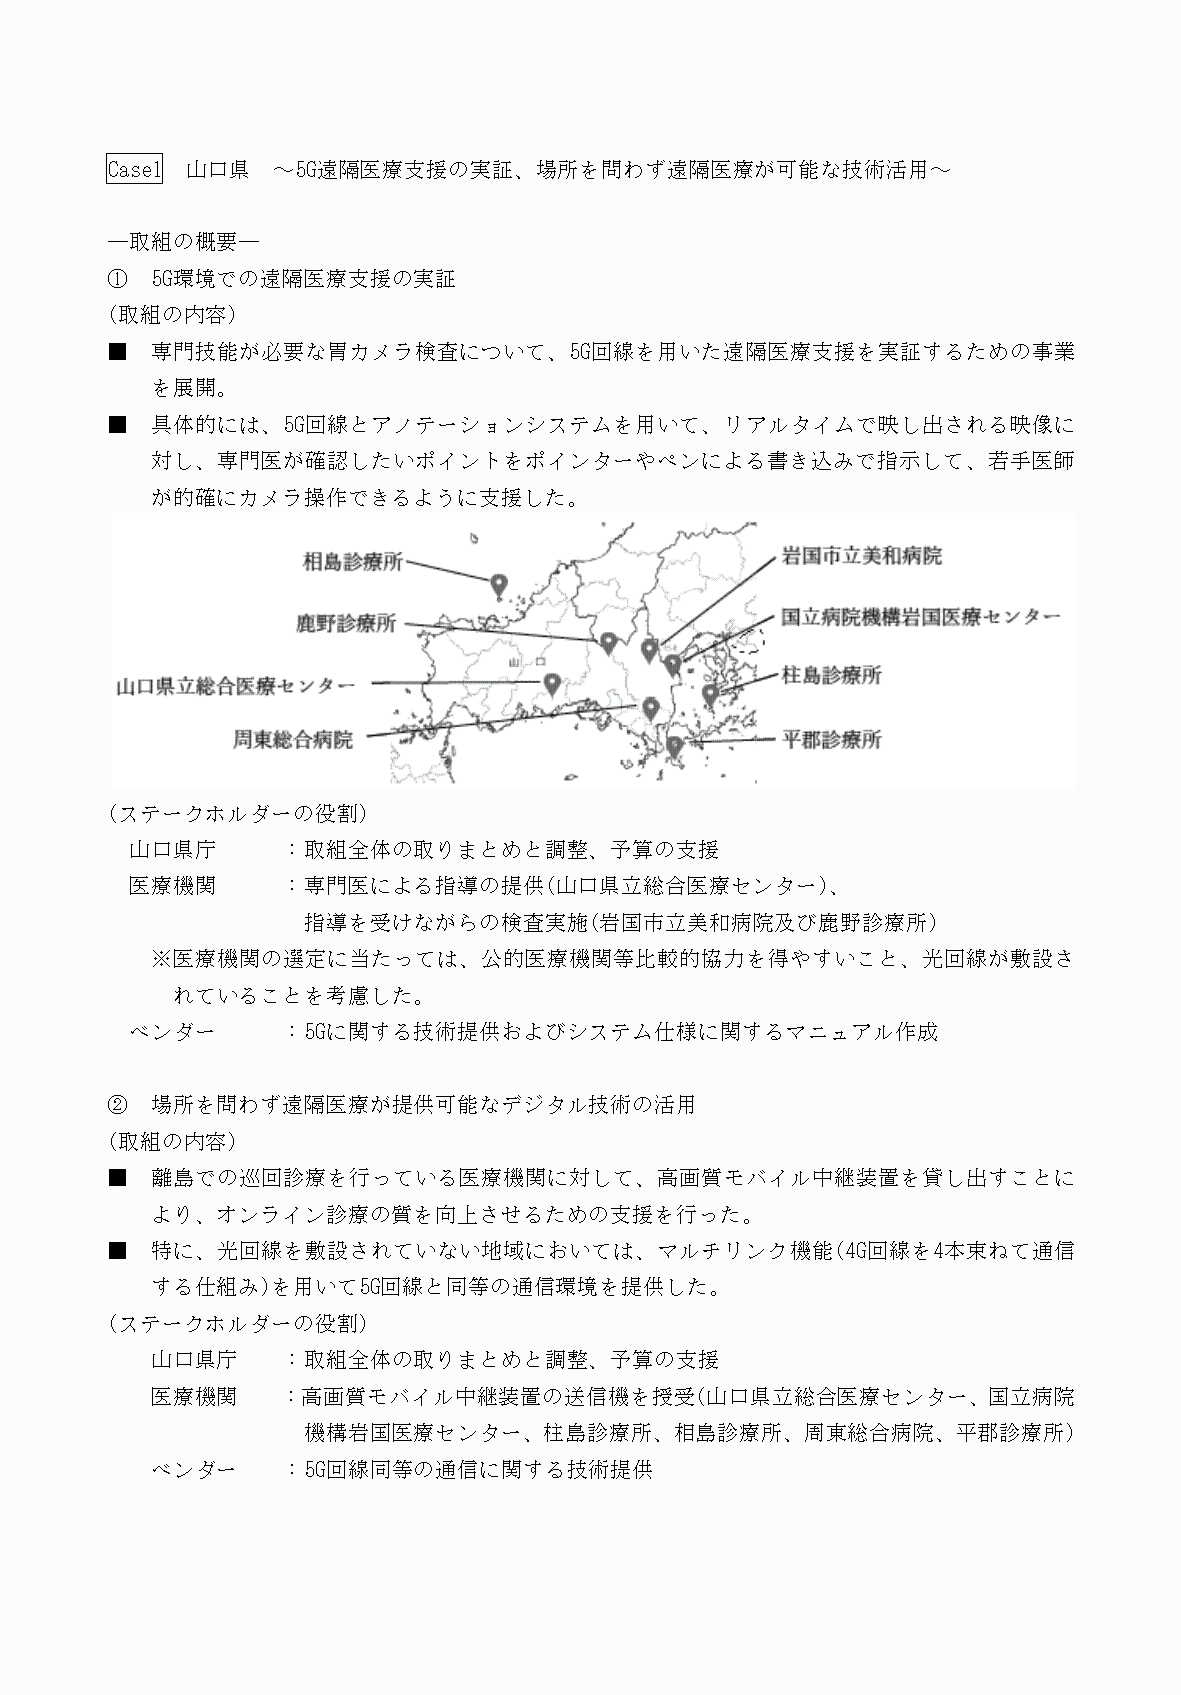 Case1 山口県 ～5G遠隔医療支援の実証、場所を問わず遠隔医療が可能な技術活用～
―取組の概要―
① 5G環境での遠隔医療支援の実証
(取組の内容)
■ 専門技能が必要な胃カメラ検査について、5G回線を用いた遠隔医療支援を実証するための事業
を展開。
■ 具体的には、5G回線とアノテーションシステムを用いて、リアルタイムで映し出される映像に
対し、専門医が確認したいポイントをポインターやペンによる書き込みで指示して、若手医師
が的確にカメラ操作できるように支援した。
相島診療所
岩国市立美和病院
鹿野診療所
国立病院機構岩国医療センター
山 口
柱島診療所
山口県立総合医療センター
周東総合病院
平郡診療所
(ステークホルダーの役割)
山口県庁 ：取組全体の取りまとめと調整、予算の支援
医療機関 ：専門医による指導の提供(山口県立総合医療センター)、
指導を受けながらの検査実施(岩国市立美和病院及び鹿野診療所)
※医療機関の選定に当たっては、公的医療機関等比較的協力を得やすいこと、光回線が敷設さ
れていることを考慮した。
ベンダー ：5Gに関する技術提供およびシステム仕様に関するマニュアル作成
② 場所を問わず遠隔医療が提供可能なデジタル技術の活用
(取組の内容)
■ 離島での巡回診療を行っている医療機関に対して、高画質モバイル中継装置を貸し出すことに
より、オンライン診療の質を向上させるための支援を行った。
■ 特に、光回線を敷設されていない地域においては、マルチリンク機能(4G回線を4本束ねて通信
する仕組み)を用いて5G回線と同等の通信環境を提供した。
(ステークホルダーの役割)
山口県庁 ：取組全体の取りまとめと調整、予算の支援
医療機関 ：高画質モバイル中継装置の送信機を授受(山口県立総合医療センター、国立病院
機構岩国医療センター、柱島診療所、相島診療所、周東総合病院、平郡診療所)
ベンダー ：5G回線同等の通信に関する技術提供